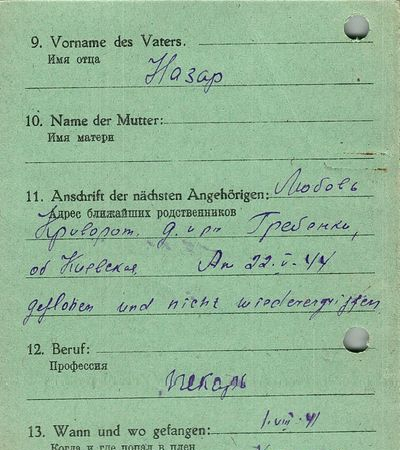 9. Vorname des Vaters.
Имя отца
Назар
10. Name der Mutter:
Имя матери
11. Anschrift der nächsten Angehörigen: Любовь
Адрес ближайших родственников
Криворот. Гребенки,
об Киевская Am 22.V.44
geflohen und nicht wiederergriffen
12. Beruf:
Профессия
Пекарь
13. Wann und wo gefangen: 1.VIII.41
Когда и где попал в плен